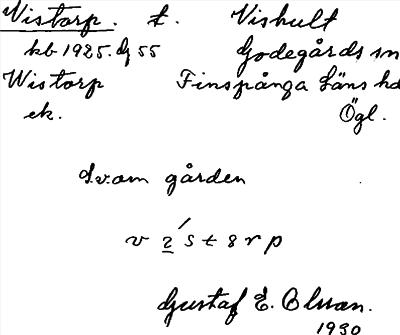 Vistorp. t. Vishult
kb 1925. dg 55 Godegårds sn
Wistorp Finspånga läns hd
ek. Ögl.
S.v. om gården
v 2́ s t 8 r p
Gustaf E. Olsson.
1930